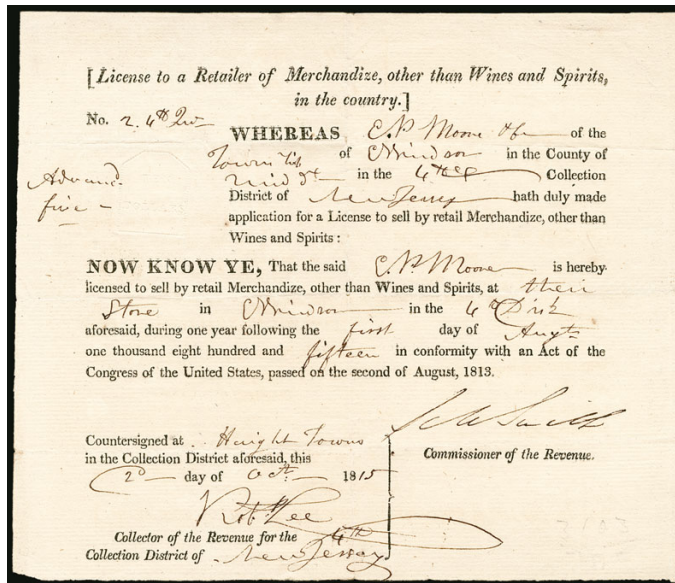 [License to a Retailer of Merchandize, other than Wines and Spirits,
in the country.]
No. 2. 4th
WHEREAS C. P. Moore of the
Township of Windsor in the County of
in the 4th Collection
Advance
five
District of New Jersey hath duly made
application for a License to sell by retail Merchandize, other than
Wines and Spirits :
NOW KNOW YE, That the said C. P. Moore is hereby
licensed to sell by retail Merchandize, other than Wines and Spirits, at their
Store in Windsor in the 4th
aforesaid, during one year following the first day of Augt
one thousand eight hundred and fifteen in conformity with an Act of the
Congress of the United States, passed on the second of August, 1813.
Countersigned at Height Towns
in the Collection District aforesaid, this
2d day of Oct. 1815
Smith
Commissioner of the Revenue.
Robt Lee
Collector of the Revenue for the 4th
Collection District of New Jersey